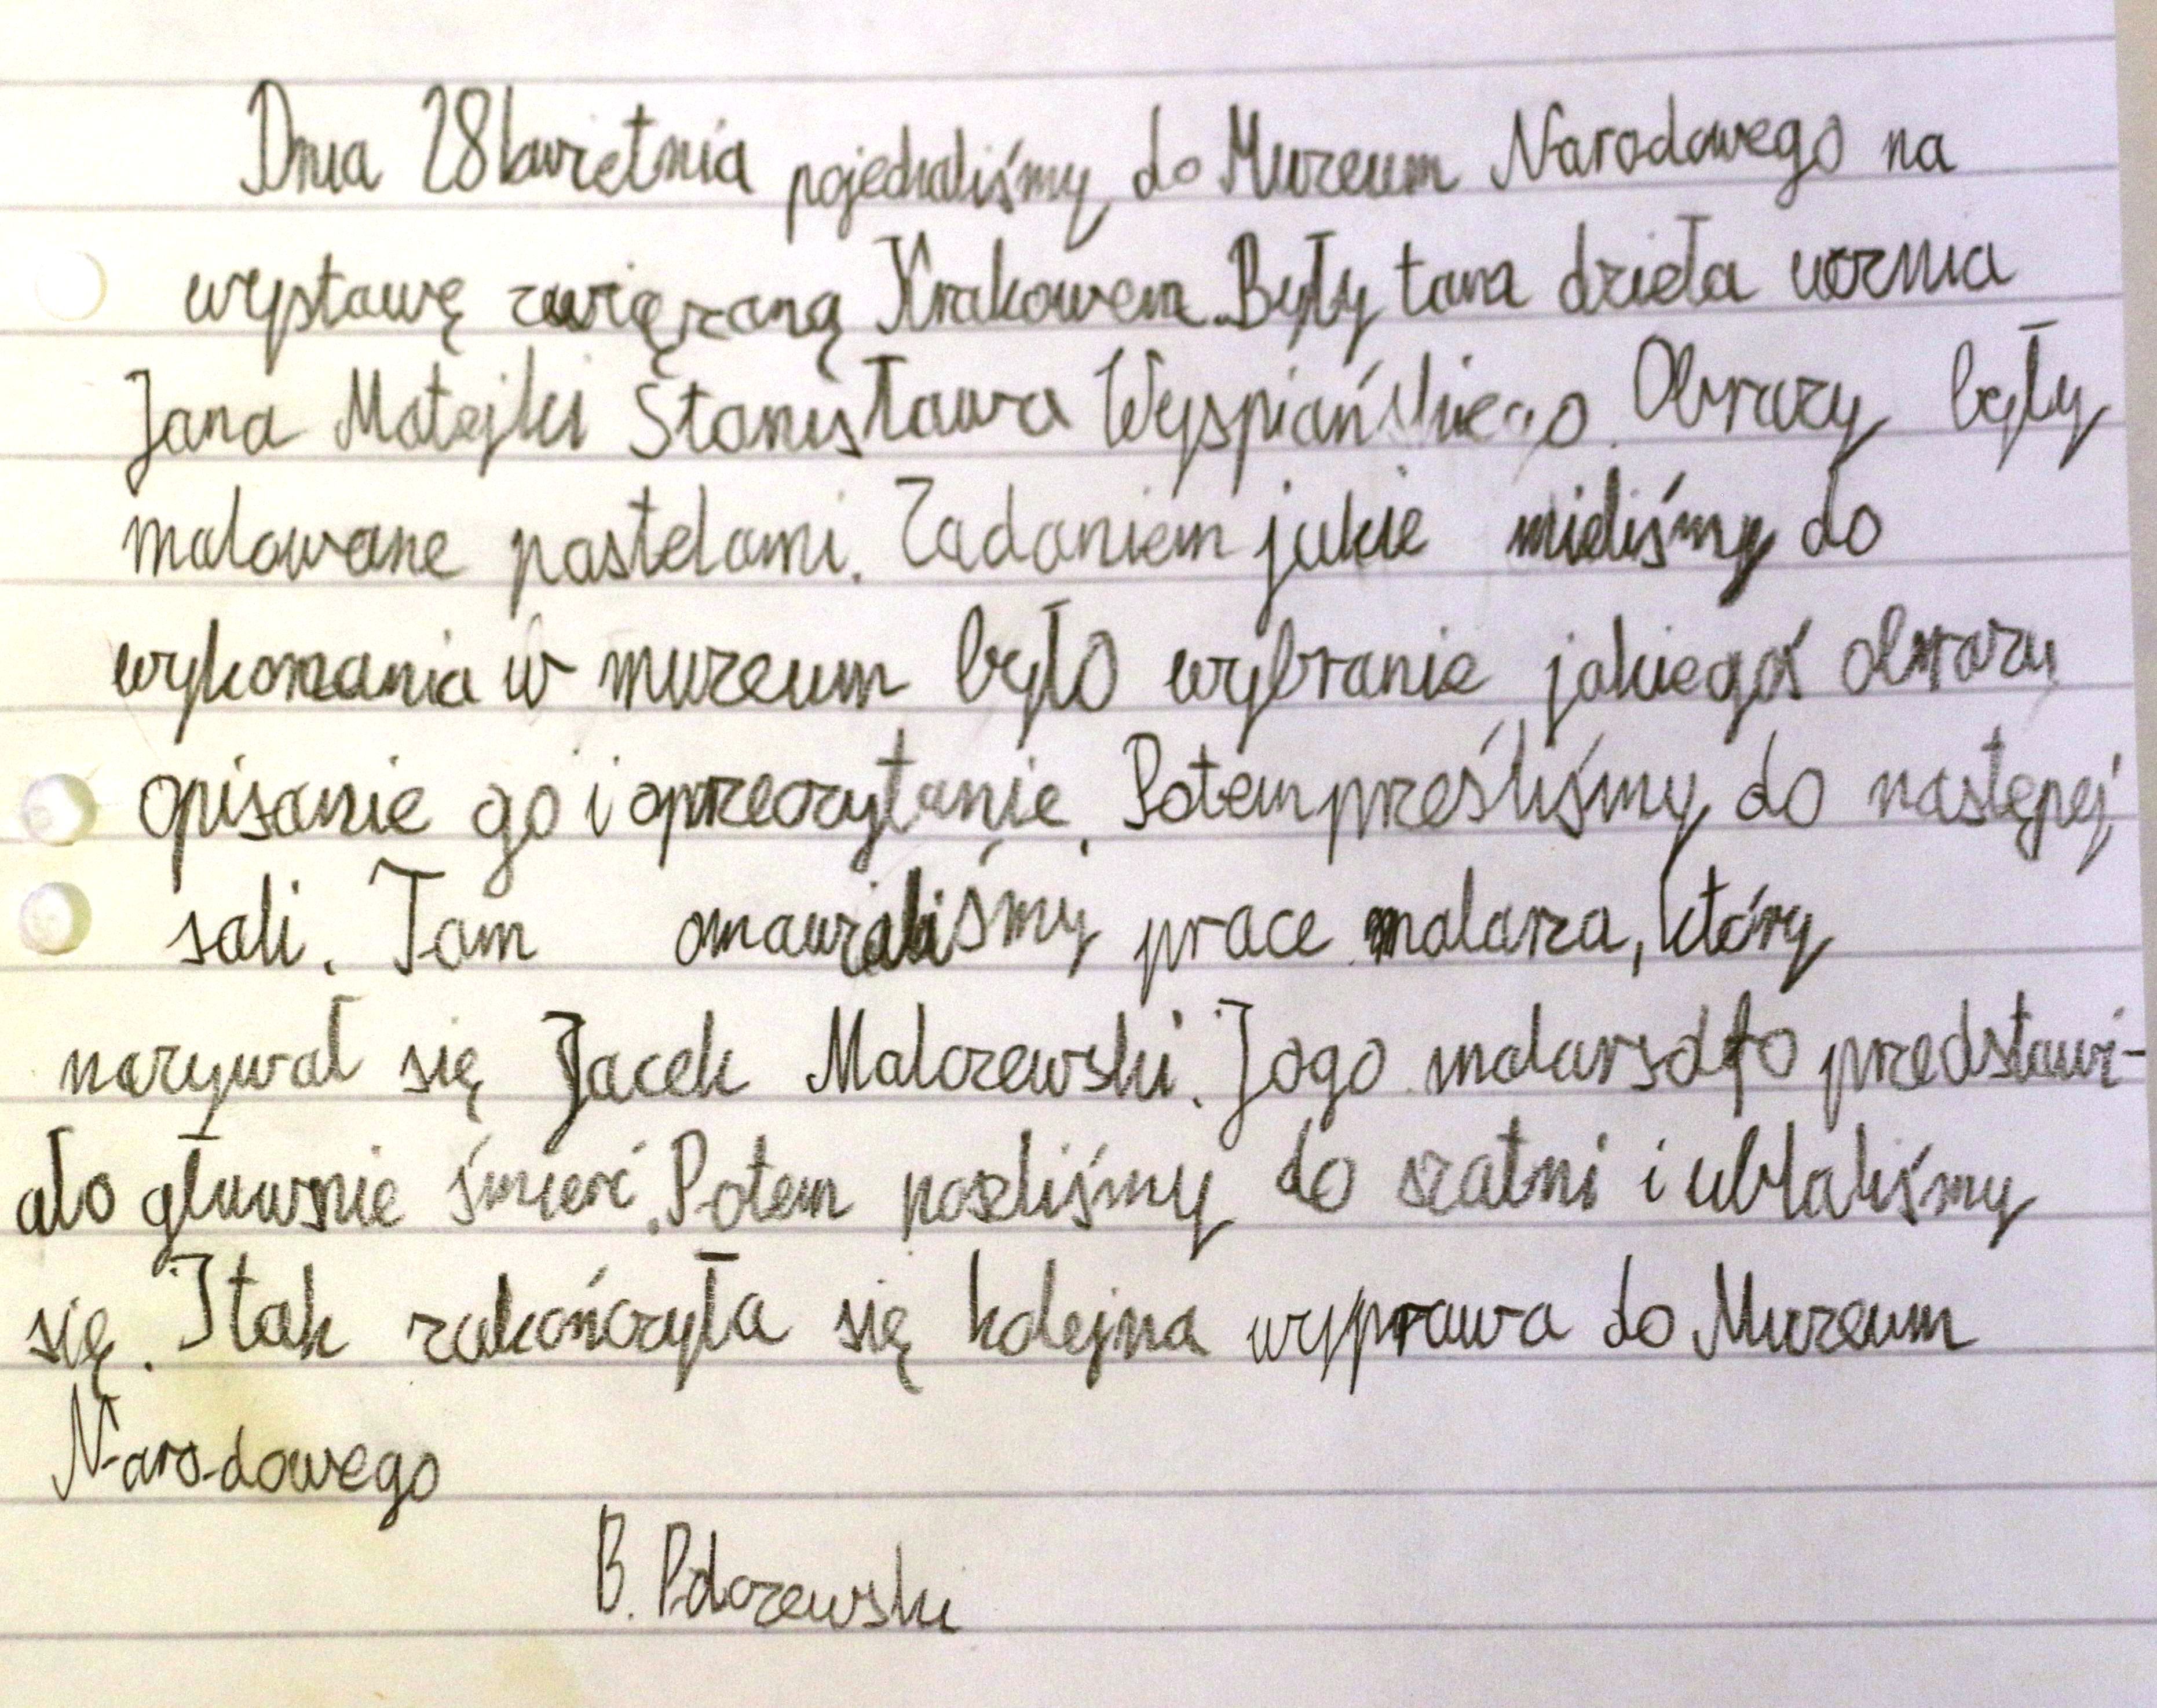 Dnia 28 kwietnia pojechaliśmy do Muzeum Narodowego na
wystawę związaną Krakowem. Były tam dzieła ucznia
Jana Matejki Stanisława Wyspiańskiego. Obrazy były
malowane pastelami. Zadaniem jakie mieliśmy do
wykonania w muzeum było wybranie jakiegoś obrazu
opisanie go i przeczytanie. Potem prześliśmy do następej
sali. Tam omawialiśmy prace malarza, który
nazywał się Jacek Malczewski. Jego przedstawi-
ało głuwnie śmierć. Potem poszliśmy do szatni i ubraliśmy
się. I tak zakończyła się kolejna wyprawa do Muzeum
Narodowego
B.